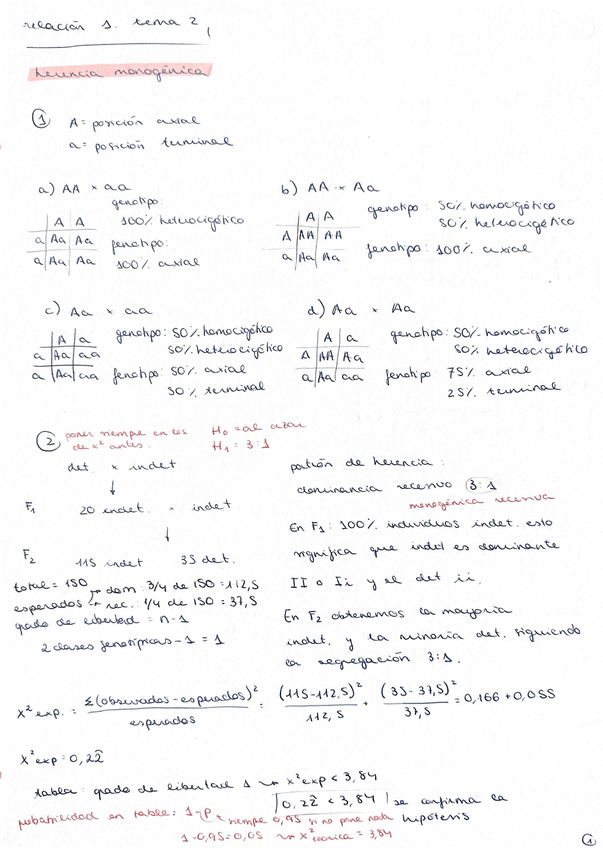 relación 1. tema 2
herencia monogénica
① A = posición axial
a = posición terminal
a) AA × aa
genotipo:
100% heterocigótico
fenotipo:
100% axial
A A
a Aa Aa
a Aa Aa
b) AA × Aa
genotipo: 50% homocigótico
50% heterocigótico
fenotipo: 100% axial
A A
A AA AA
a Aa Aa
c) Aa × aa
genotipo: 50% homocigótico
50% heterocigótico
fenotipo: 50% axial
50% terminal
A a
a Aa aa
a Aa aa
d) Aa × Aa
genotipo: 50% homocigótico
50% heterocigótico
fenotipo: 75% axial
25% terminal
A a
A AA Aa
a Aa aa
② poner siempre en los
de x² antes.
H₀ = al azar
H₁ = 3:1
det. × indet
F₁ 20 indet. × indet
F₂ 115 indet 35 det.
total = 150
esperados dom: 3/4 de 150 = 112,5
rec.: 1/4 de 150 = 37,5
grado de libertad = n-1
2 clases fenotípicas - 1 = 1
patrón de herencia:
dominancia recesivo 3:1
monogénica recesiva
En F₁: 100% individuos indet. esto
significa que indet es dominante
II o Ii y el det ii.
En F₂ obtenemos la mayoría
indet. y la minoría det. siguiendo
la segregación 3:1.
X² exp. = Σ(observados - esperados)² / esperados = (115-112,5)² / 112,5 + (35-37,5)² / 37,5 = 0,166 + 0,055
X² exp = 0,22̂
tabla: grado de libertad 1 ⇝ x² exp < 3,84
0,22̂ < 3,84 se confirma la
hipótesis
probabilidad en tabla: 1-P siempre 0,95 si no pone nada
1-0,95 = 0,05 ⇝ x² teórica = 3,84
1